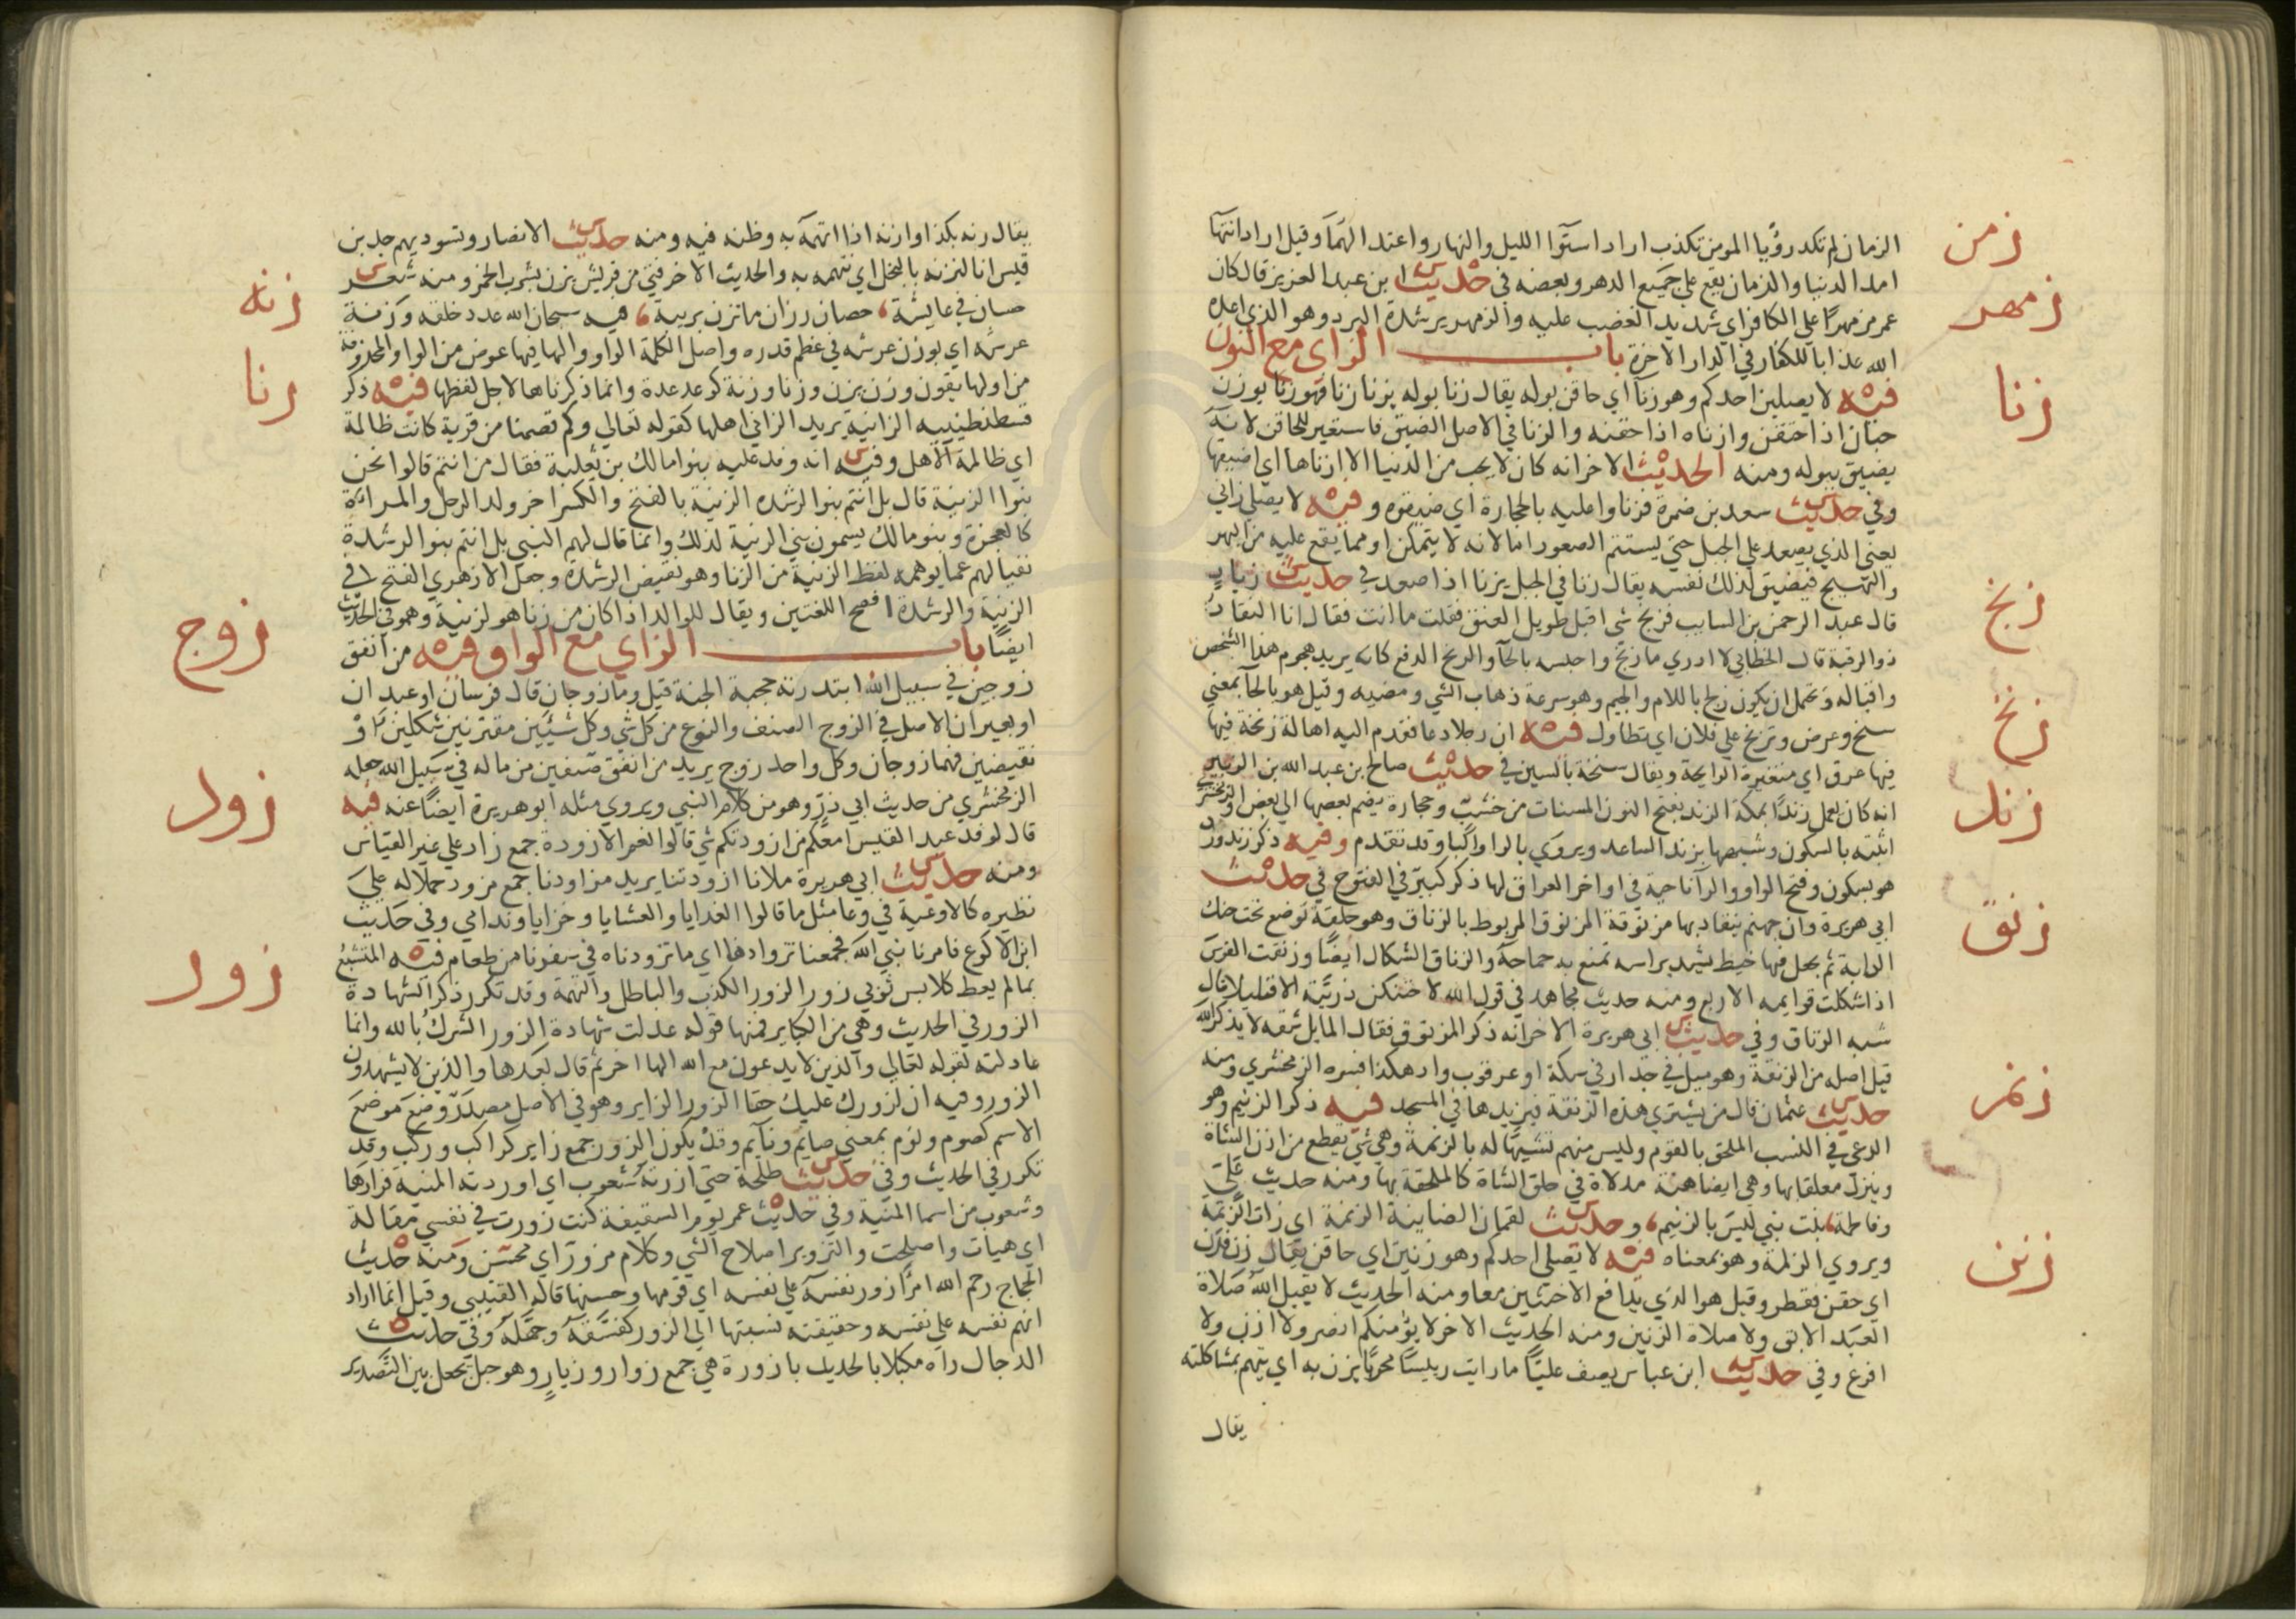 زمن
الزمان لم تكد رؤيا المومن تكذب اراد استوا الليل والنهار واعتدالهما وقيل اراد انتها
امد الدنيا والزمان يقع علي جميع الدهر وبعضه في حديث ابن عبد العزيز قال كان
زمهر
عمر مزمهرا علي الكافر اي شديد الغضب عليه والزمهرير شدة البرد وهو الذي اعده
الله عذابا للكفار في الدار الاخرة باب الزاي مع النون
زنا
فيه لا يصلين احدكم وهو زنا اي حاقن بوله يقال زنا بوله يزنا زنا فهو زنا بوزن
جبان اذا احتقن وازناه اذا حقنه والزنا في الاصل الضيق فاستعير للحاقن لانه
يضيق ببوله ومنه الحديث الاخر انه كان لا يحب من الدنيا الا ازناها اي اضيقها
وفي حديث سعد بن ضمرة فزناوا عليه بالحجارة اي ضيقوه وفيه لا يصلي زاني
يعني الذي يصعد علي الجبل حتي يستتم الصعود اما لانه لا يتمكن او مما يقع عليه من البهر
والنهيج فيضيق لذلك نفسه يقال زنا في الجبل يزنا اذا صعد في حديث زياد
زنج
قال عبد الرحمن بن السايب فزنج شي اقبل طويل العنق فقلت ما انت فقال انا النقاد
ذو الرقبة قال الخطابي لا ادري ما زنج واحلسه بالحا والزنح الدفع كانه يريد هجوم هذا الشخص
واقباله ويحتمل ان يكون زلج باللام والجيم وهو سرعة ذهاب الشي ومضيه وقيل هو بالحا بمعني
زنخ
سنح وعرض وتزنح علي فلان اي تطاول فيه ان رجلا دعا فقدم اليه اهالة زنخة فيها
فيها عرق اي متغيرة الرايحة ويقال سنخة بالسين في حديث صالح بن عبد الله بن الزبير
زند
انه كان يعمل زندا بمكة الزند بفتح النون المسنات من خشب وحجارة يضم بعضها الي بعض والزمخشري
اثبته بالسكون وشبهها بزند الساعد ويروي بالرا والبا وقد تقدم وفيه ذكر زندورد
هو بسكون وفتح الواو والرا ناحية في اواخر العراق لها ذكر كبير في الفتوح في حديث
زنق
ابي هريرة وان جهنم يقاد بها مزنوقة المزنوق المربوط بالزناق وهو حلقة توضع تحت حنك
الدابة ثم يجعل فيها خيط يشد براسه تمنع به جماحه والزناق الشكال ايضا وزنقت الفرس
اذا شكلت قوايمه الاربع ومنه حديث مجاهد في قول الله لاحتنكن ذريته الا قليلا قال
شبه الزناق وفي حديث ابي هريرة الاخر انه ذكر المزنوق فقال المايل شقه لا يذكر الله
قيل اصله من الزنقة وهو ميل في جدار في سكة او عرقوب واد هكذا فسره الزمخشري ومنه
زنم
حديث عثمان قال من يشتري هذه الزنقة فيزيدها في المسجد فيه ذكر الزنيم وهو
الدعي في النسب الملحق بالقوم وليس منهم تشبيها له بالزنمة وهي شي يقطع من اذن الشاة
ويترك معلقا بها وهي ايضا هنة مدلاة في حلق الشاة كالملحقة بها ومنه حديث علي
وفاطمة بنت نبي ليس بالزنيم وحديث لقمان الضاينة الزنمة اي ذات الزنمة
زنن
ويروي الزلمة وهو بمعناه فيه لا يصلي احدكم وهو زنين اي حاقن يقال زن فذن
اي حقن فقطر وقيل هو الذي يدافع الاخبثين معا ومنه الحديث لا يقبل الله صلاة
العبد الابق ولا صلاة الزنين ومنه الحديث الاخر لا يؤمنكم انصر ولا ازن ولا
افرع وفي حديث ابن عباس يصف عليا ما رايت رييسا محربا يزن به اي يتهم بمشاكلته
يقال
يقال زنه بكذا وازنه اذا اتهمه به وظنه فيه ومنه حديث الانصار وتسويدهم جد بن
قيس انا لنزنه بالبخل اي نتهمه به والحديث الاخر فتي من قريش يزن بشرب الخمر ومنه شعر
زنه
حسان في عايشة حصان رزان ما تزن بريبة فيه سبحان الله عدد خلقه وزنة
عرشه اي بوزن عرشه في عظم قدره واصل الكلمة الواو والها فيها عوض من الواو المحذوفة
زنا
من اولها يقول وزن يزن وزنا وزنة كوعد عدة وانما ذكرناها لاجل لفظها فيه ذكر
قسطنطينيه الزانية يريد الزاني اهلها كقوله تعالي وكم قصمنا من قرية كانت ظالمة
اي ظالمة الاهل وفيه انه وفد عليه بنوا مالك بن ثعلبة فقال من انتم قالوا نحن
بنوا الزنية قال بل انتم بنوا الرشده الزنية بالفتح والكسر اخر ولد الرجل والمراة
كالعجزة وبنو مالك يسمون بني الزنية لذلك وانما قال لهم النبي بل انتم بنوا الرشدة
نفيا لهم عما يوهمه لفظ الزنية من الزنا وهو نقيض الرشدة وجعل الازهري الفتح في
الزنية والرشدة افصح اللغتين ويقال للولد اذا كان من زنا هو لزنية وهو في الحديث
زوج
ايضا باب الزاي مع الواو فيه من انفق
زوجين في سبيل الله ابتدرته حجبة الجنة قيل وما زوجان قال فرسان او عبدان
او بعيران الاصل في الزوج الصنف والنوع من كل شي وكل شيئين مقترنين شكلين او
نقيضين فهما زوجان وكل واحد زوج يريد من انفق صنفين من ماله في سبيل الله جعله
الزمخشري من حديث ابي ذر وهو من كلام النبي ويروي مثله ابو هريرة ايضا عنه فيه
زود
قال لوفد عبد القيس امعكم من ازودتكم شي قالوا نعم الازودة جمع زاد علي غير القياس
ومنه حديث ابي هريرة ملانا ازودتنا يريد مزاودنا جمع مزود حملا له علي
نظيره كالاوعية في وعا مثل ما قالوا الغدايا والعشايا وخزايا وندامي وفي حديث
ابن الاكوع فامرنا نبي الله فجمعنا تزوادنا اي ما تزودناه في سفرنا من طعام فيه المتشبع
زور
بما لم يعط كلابس ثوبي زور الزور الكذب والباطل والتهمة وقد تكرر ذكر الشهادة
الزور في الحديث وهي من الكباير فمنها قوله عدلت شهادة الزور الشرك بالله وانما
عادلته لقوله تعالي والذين لا يدعون مع الله الها اخر ثم قال بعدها والذين لا يشهدون
الزور وفيه ان لزورك عليك حقا الزور الزاير وهو في الاصل مصدر وضع موضع
الاسم كصوم ونوم بمعني صايم ونايم وقد يكون الزور جمع زاير كراكب وركب وقد
تكرر في الحديث وفي حديث طلحة حتي ازرته شعوب اي اوردته المنية فزارها
وشعوب من اسما المنية وفي حديث عمر يوم السقيفة كنت زورت في نفسي مقالة
اي هيات واصلحت والتزوير اصلاح الشي وكلام مزور اي محسن ومنه حديث
الحجاج رحم الله امرا زور نفسه علي نفسه اي قومها وحسنها قاله القتيبي وقيل انما اراد
اتهم نفسه علي نفسه وحقيقته نسبتها الي الزور كفسقه وجهله وفي حديث
الدجال راه مكبلا بالحديد بازورة هي جمع زوار وزيار وهو حبل يجعل بين التصدير